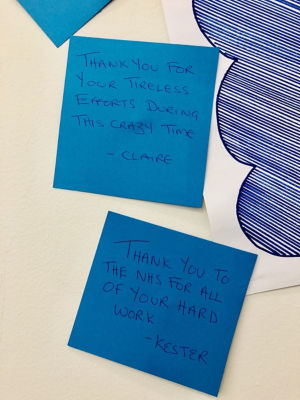 THANK YOU FOR
YOUR TIRELESS
EFFORTS DURING
THIS CRAZY TIME
- CLAIRE
THANK YOU TO
THE NHS FOR ALL
OF YOUR HARD
WORK
- KESTER